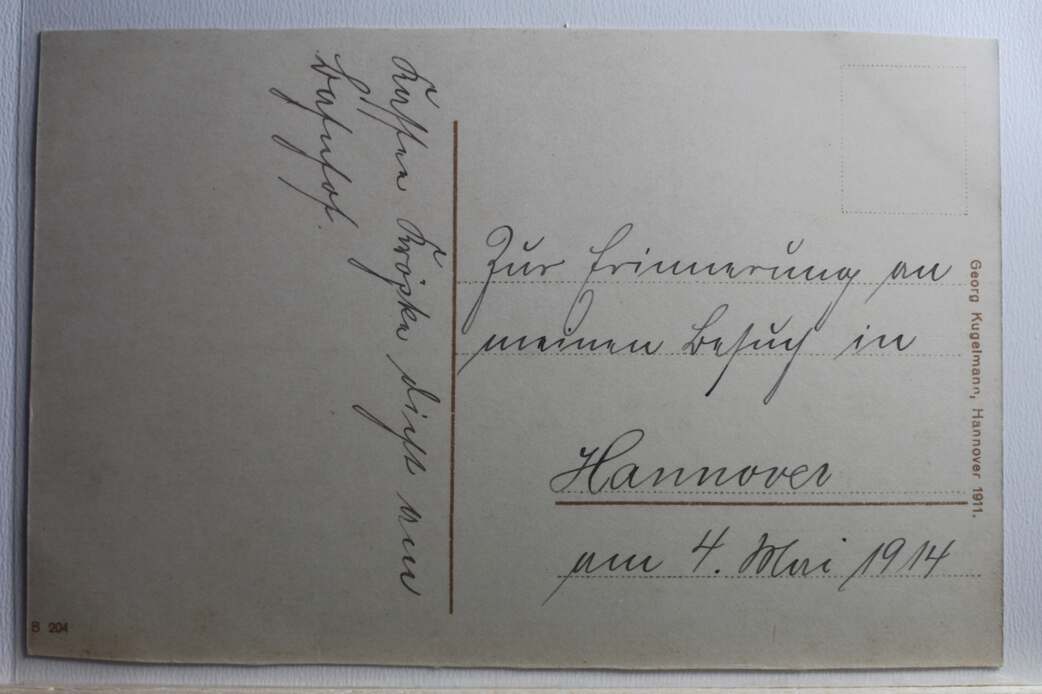 Kaffee Kröpke dicht am
Bahnhof.
Zur Erinnerung an
meinen Besuch in
Hannover
am 4. Mai 1914
Georg Kugelmann, Hannover 1911.
S 204